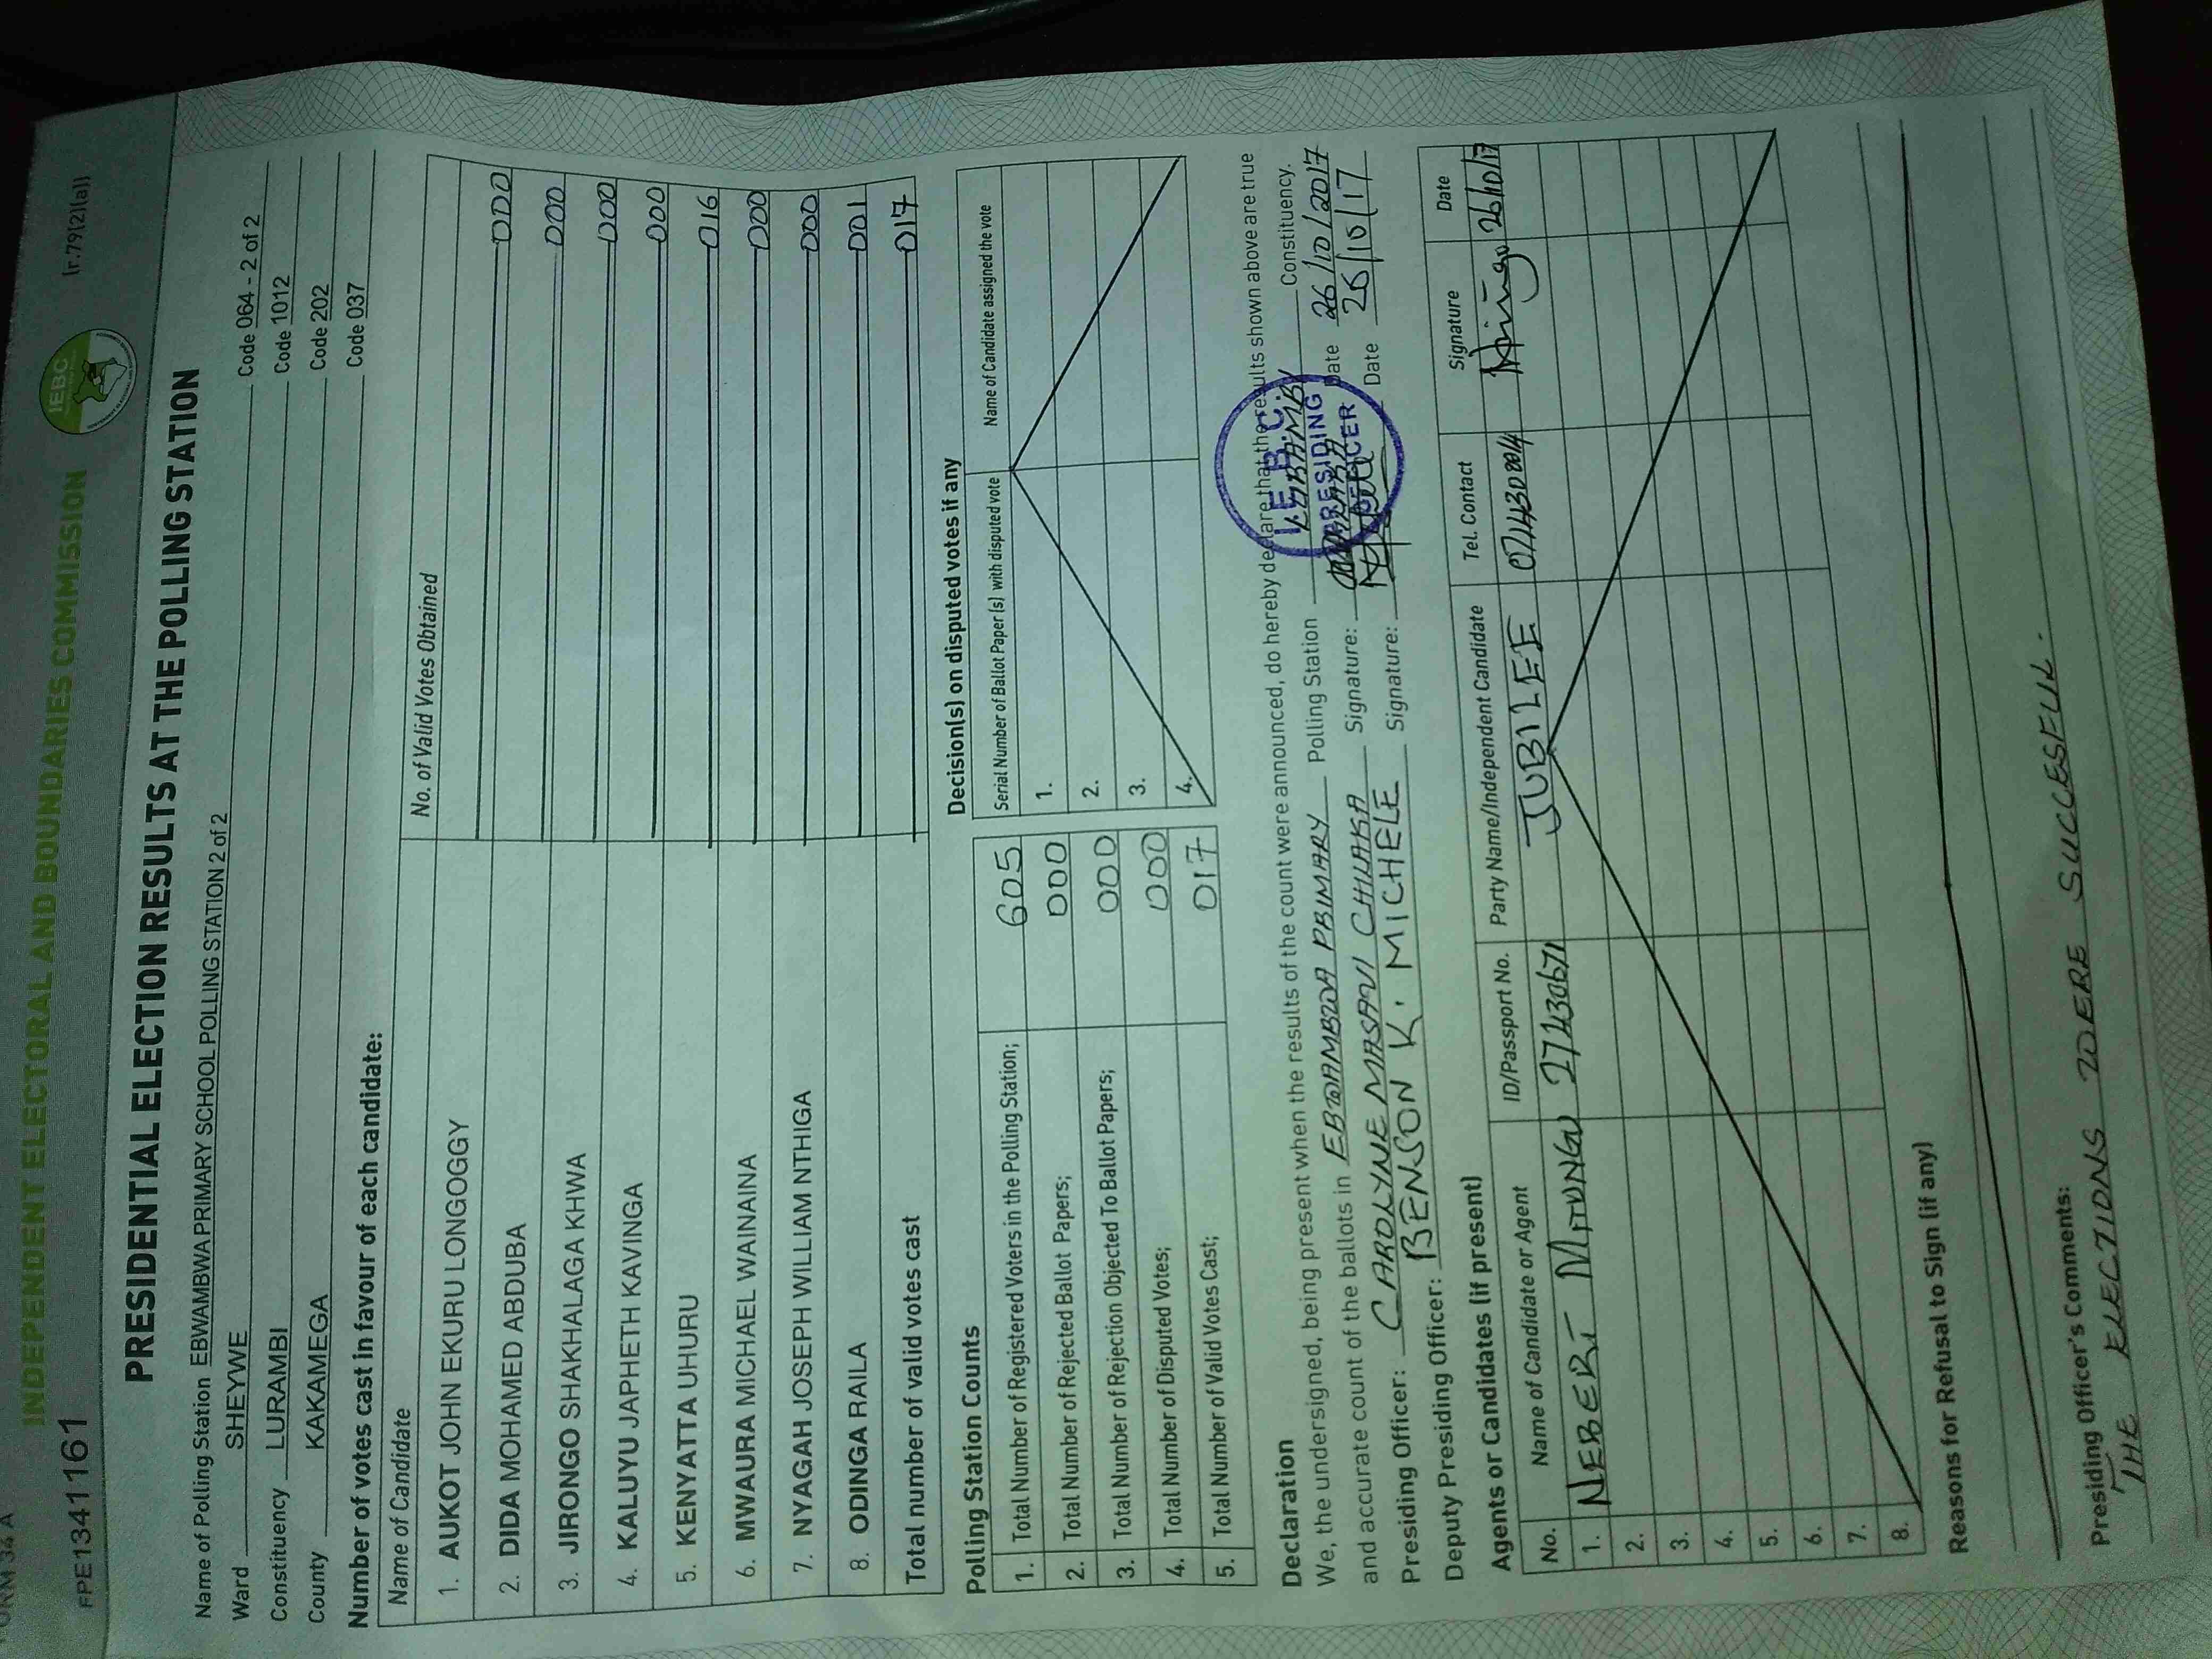 FORM 34 A
INDEPENDENT ELECTORAL AND BOUNDARIES COMMISSION
IEBC
(r.79(2)(a))
FPE1341161
PRESIDENTIAL ELECTION RESULTS AT THE POLLING STATION
Name of Polling Station EBWAMBWA PRIMARY SCHOOL POLLING STATION 2 of 2 Code 064 - 2 of 2
Ward SHEYWE Code 1012
Constituency LURAMBI Code 202
County KAKAMEGA Code 037
Number of votes cast in favour of each candidate:
Name of Candidate No. of Valid Votes Obtained
1. AUKOT JOHN EKURU LONGOGGY 000
2. DIDA MOHAMED ABDUBA 000
3. JIRONGO SHAKHALAGA KHWA 000
4. KALUYU JAPHETH KAVINGA 000
5. KENYATTA UHURU 016
6. MWAURA MICHAEL WAINAINA 000
7. NYAGAH JOSEPH WILLIAM NTHIGA 000
8. ODINGA RAILA 001
Total number of valid votes cast 017
Polling Station Counts
1. Total Number of Registered Voters in the Polling Station; 605
2. Total Number of Rejected Ballot Papers; 000
3. Total Number of Rejection Objected To Ballot Papers; 000
4. Total Number of Disputed Votes; 000
5. Total Number of Valid Votes Cast; 017
Decision(s) on disputed votes if any
Serial Number of Ballot Paper (s) with disputed vote Name of Candidate assigned the vote
1.
2.
3.
4.
Declaration
We, the undersigned, being present when the results of the count were announced, do hereby declare that the results shown above are true
and accurate count of the ballots in EBWAMBWA PRIMARY Polling Station LURAMBI Constituency.
Presiding Officer: CAROLYNE MASAVI CHILAKA Signature: Date 26/10/2017
Deputy Presiding Officer: BENSON K. MICHELE Signature: Date 26/10/17
I.E.B.C.
PRESIDING
OFFICER
Agents or Candidates (if present)
No. Name of Candidate or Agent ID/Passport No. Party Name/Independent Candidate Tel. Contact Signature Date
1. NEBERT 27430671 JUBILEE 26/10/17
2.
3.
4.
5.
6.
7.
8.
Reasons for Refusal to Sign (if any)
Presiding Officer's Comments:
THE ELECTIONS WERE SUCCESSFUL.